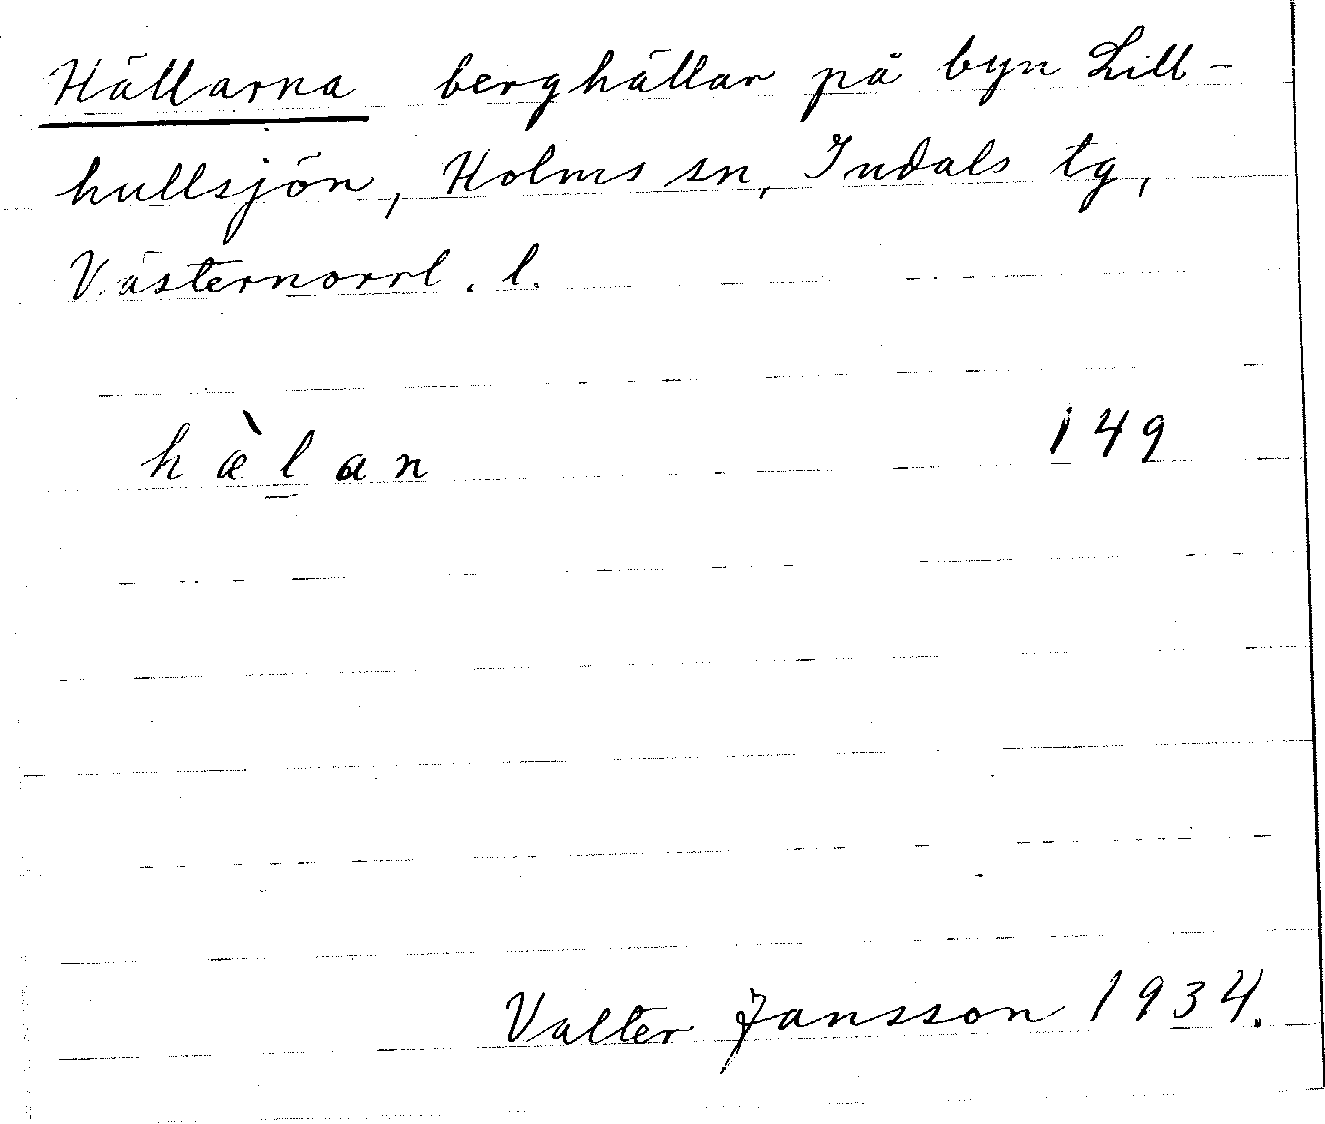 Hällarna berghällar på byn Lill-
hullsjön, Holms sn, Indals tg,
Västernorrl. l.
hæ̀l̲an 149
Valter Jansson 1934.